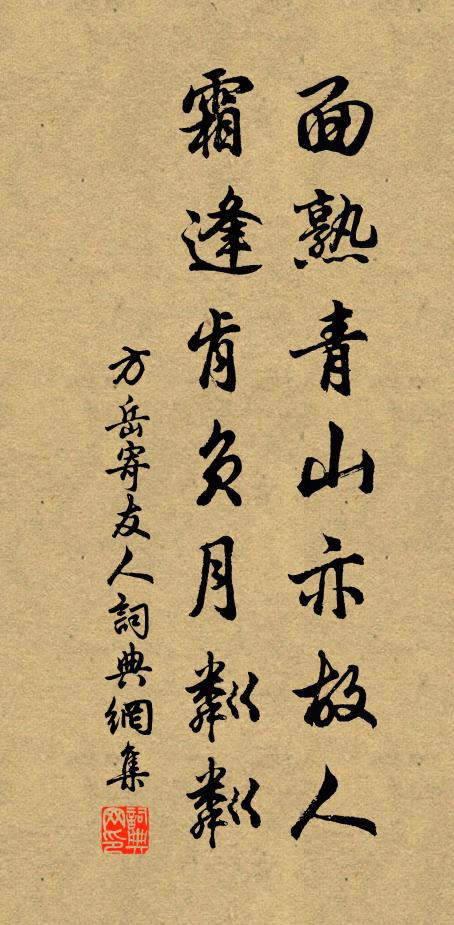 面熟青山亦故人
霜逢肯负月粼粼
方岳寄友人詞典網集
詞典网印